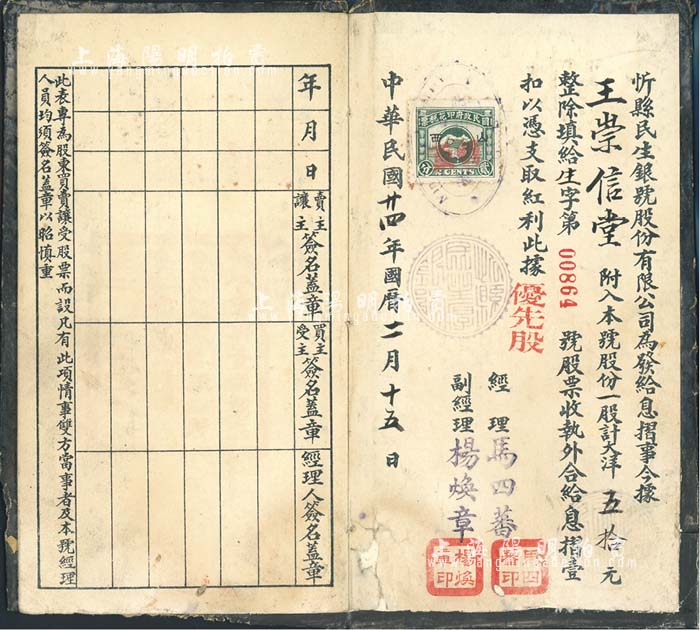 忻縣民生銀號股份有限公司為發給息摺事今據
王崇信堂 附入本號股份一股計大洋 五拾元
整除填給生字第 00864 號股票收執外合給息摺壹
扣以憑支取紅利此據
優先股
經理 馬四蕃
副經理 楊煥章
馬四蕃印
楊煥章印
國民政府印花稅票
山西
2 CENTS
中華民國廿四年國曆二月十五日
年 月 日
賣主
讓主
簽名蓋章
買主
受主
簽名蓋章
經理人簽名蓋章
此表專為股東買賣讓受股票而設凡有此項情事雙方當事者及本號經理
人員均須簽名蓋章以昭慎重
上海陽明拍賣
上海陽明拍賣
上海陽明拍賣